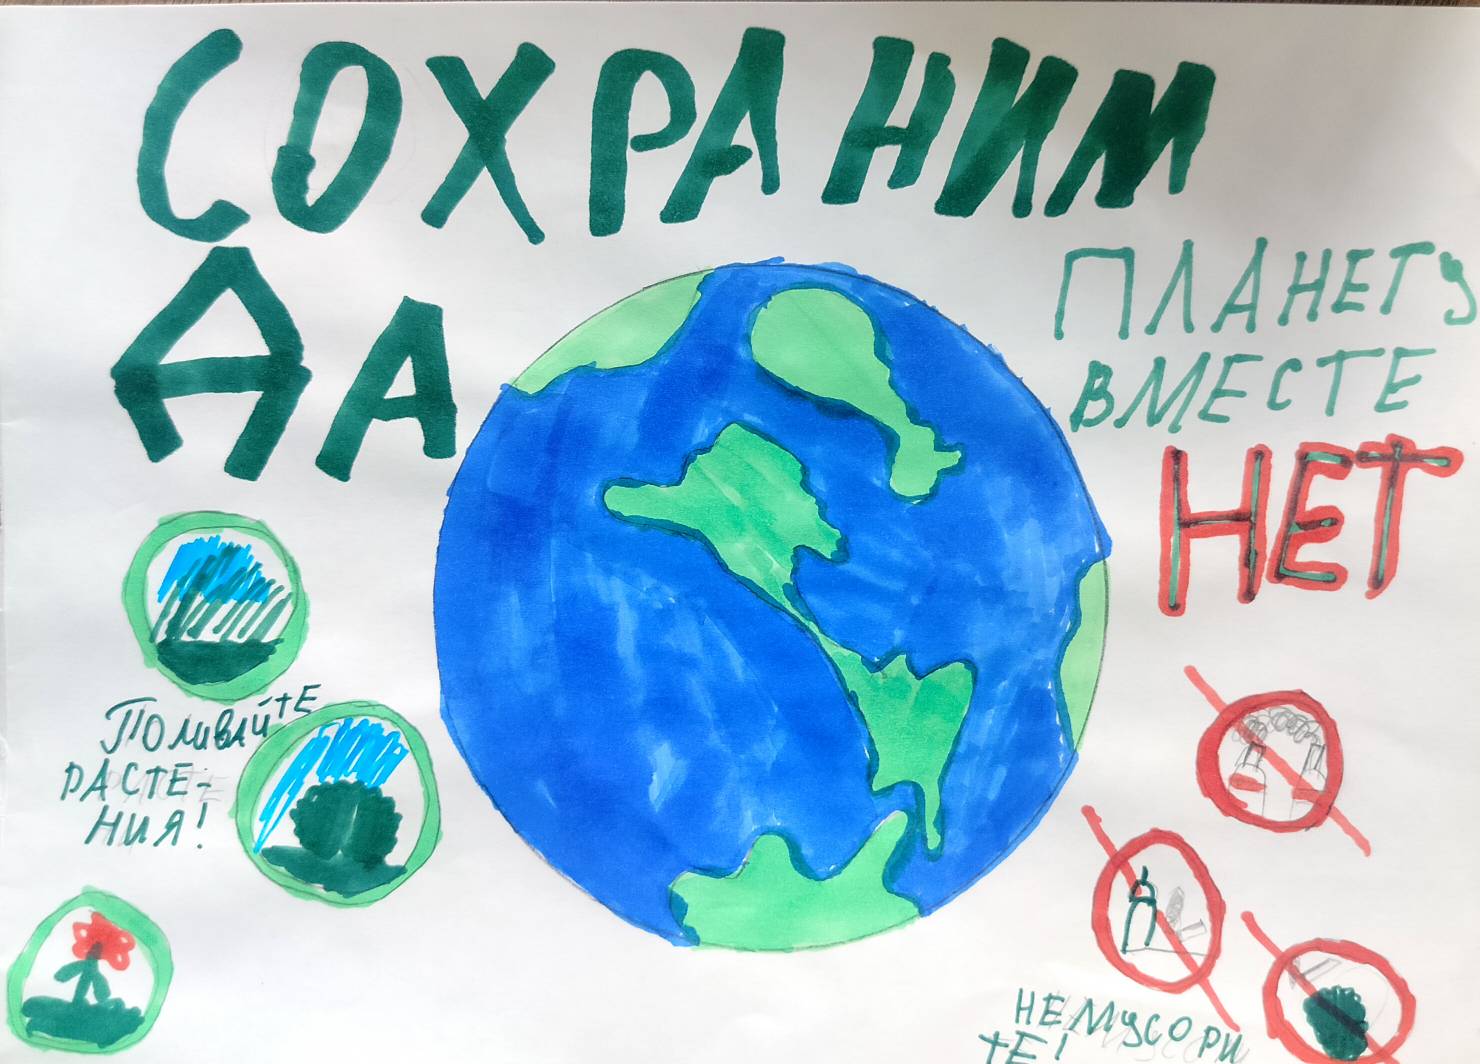 СОХРАНИМ
ПЛАНЕТУ
ВМЕСТЕ
ДА
НЕТ
ПОЛИВАЙТЕ
РАСТЕ-
НИЯ!
НЕ МУСОРИ
ТЕ!